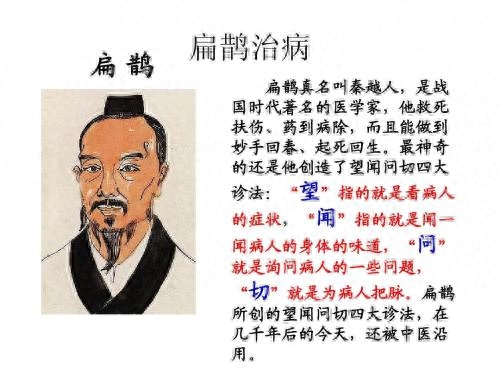 扁鹊治病
扁 鹊
扁鹊真名叫秦越人，是战
国时代著名的医学家，他救死
扶伤、药到病除，而且能做到
妙手回春、起死回生。最神奇
的还是他创造了望闻问切四大
诊法：“望”指的就是看病人
的症状，“闻”指的就是闻一
闻病人的身体的味道，“问”
就是询问病人的一些问题，
“切”就是为病人把脉。扁鹊
所创的望闻问切四大诊法，在
几千年后的今天，还被中医沿
用。